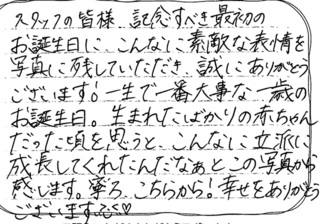 スタッフの皆様、記念すべき最初の
お誕生日に、こんなに素敵な表情を
写真に残していただき、誠にありがとう
ございます！一生で一番大事な一歳の
お誕生日。生まれたばかりの赤ちゃん
だった頃を思うと、こんなに立派に
成長してくれたんだなぁとこの写真から
感じます。寧ろ、こちらから！幸せをありがとう
ございます♡